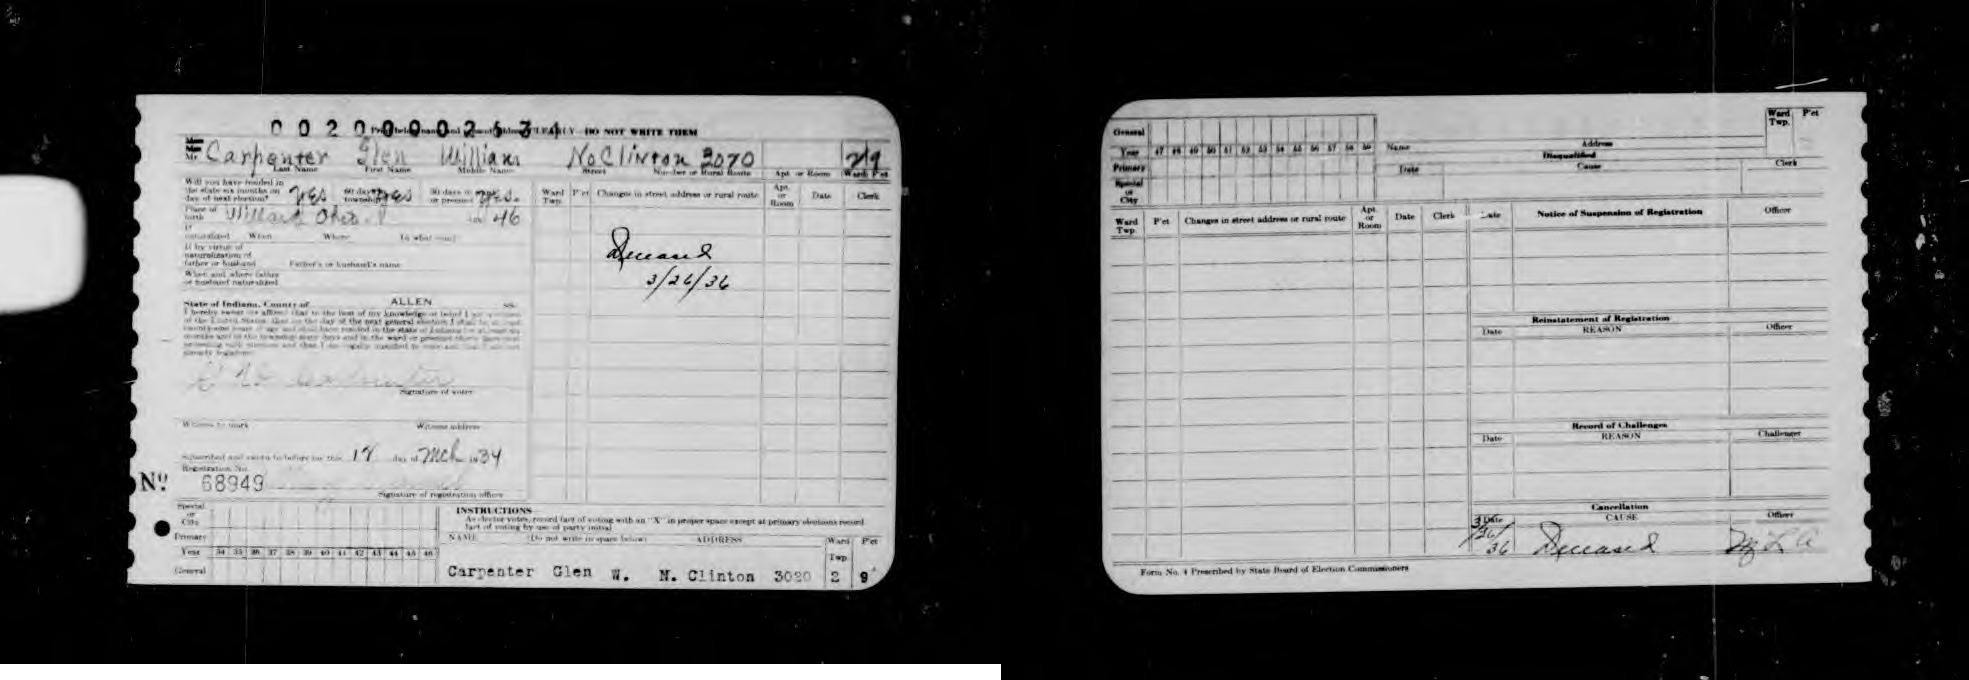 0 0 2 0 0 0 0 2 5 3 4
DO NOT WRITE THEM
Mr. Carpenter Glen William No Clinton 3020 2/9
Last Name First Name Middle Name Street Number or Rural Route Apt. or Room Ward P'ct
Will you have resided in the state six months on day of next election? Yes 60 days in township Yes 30 days in ward or precinct Yes.
Place of birth Willard Ohio. 46
If naturalized When Where In what court
If by virtue of naturalization of father or husband Father's or husband's name
When and where father or husband naturalized
State of Indiana, County of ALLEN ss.
I hereby swear (or affirm) that to the best of my knowledge or belief I am a citizen
of the United States; that on the day of the next general election I shall be at least
Signature of voter
Witness to mark Witness address
Subscribed and sworn to before me this 17 day of Mch 1934
Registration No.
No. 68949
Signature of registration officer
Ward Twp. P'ct Changes in street address or rural route Apt. or Room Date Clerk
Deceased
3/26/36
Special or City
Primary
Year 34 35 36 37 38 39 40 41 42 43 44 45 46
General
INSTRUCTIONS
As elector votes, record fact of voting with an "X" in proper space except at primary elections record
fact of voting by use of party initial
NAME (Do not write in space below) ADDRESS Ward Twp. P'ct
Carpenter Glen W. N. Clinton 3020 2 9
General
Year 47 48 49 50 51 52 53 54 55 56 57 58 59
Primary
Special or City
Name Address Ward Twp. P'ct
Disqualified
Date Cause Clerk
Ward Twp. P'ct Changes in street address or rural route Apt. or Room Date Clerk
Date Notice of Suspension of Registration Officer
Reinstatement of Registration
Date REASON Officer
Record of Challenges
Date REASON Challenger
Cancellation
Date CAUSE Officer
3/26/36 Deceased
Form No. 4 Prescribed by State Board of Election Commissioners